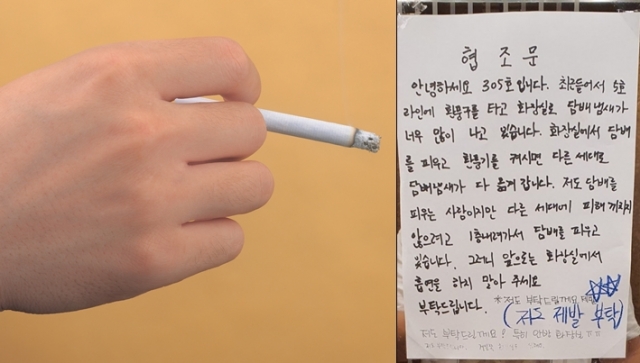 협조문
안녕하세요 305호입니다. 최근들어서 5호
라인에 환풍구를 타고 화장실로 담배냄새가
너무 많이 나고 있습니다. 화장실에서 담배
를 피우고 환풍기를 켜시면 다른 세대로
담배냄새가 다 옮겨 갑니다. 저도 담배를
피우는 사람이지만 다른 세대에 피해 끼치지
않으려고 1층내려가서 담배를 피우고
있습니다. 그러니 앞으로는 화장실에서
흡연을 하지 말아 주세요
부탁드립니다. *저도 부탁드릴게요 제발
(저도 제발 부탁)
저도 부탁드릴게요